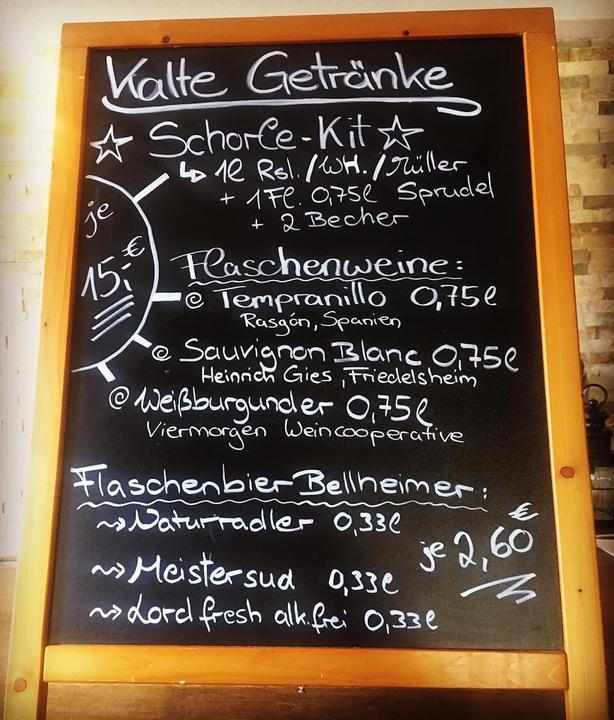 Kalte Getränke
☆ Schorle-Kit ☆
↳ 1l Rsl./WH./Müller
+ 1 Fl. 0,75l Sprudel
+ 2 Becher
je
15,- €
Flaschenweine:
@ Tempranillo 0,75l
Rasgón, Spanien
@ Sauvignon Blanc 0,75l
Heinrich Gies, Friedelsheim
@ Weißburgunder 0,75l
Viermorgen Weincooperative
Flaschenbier Bellheimer:
~> Naturradler 0,33l
je 2,60 €
~> Meistersud 0,33l
~> Lord fresh alk.frei 0,33l